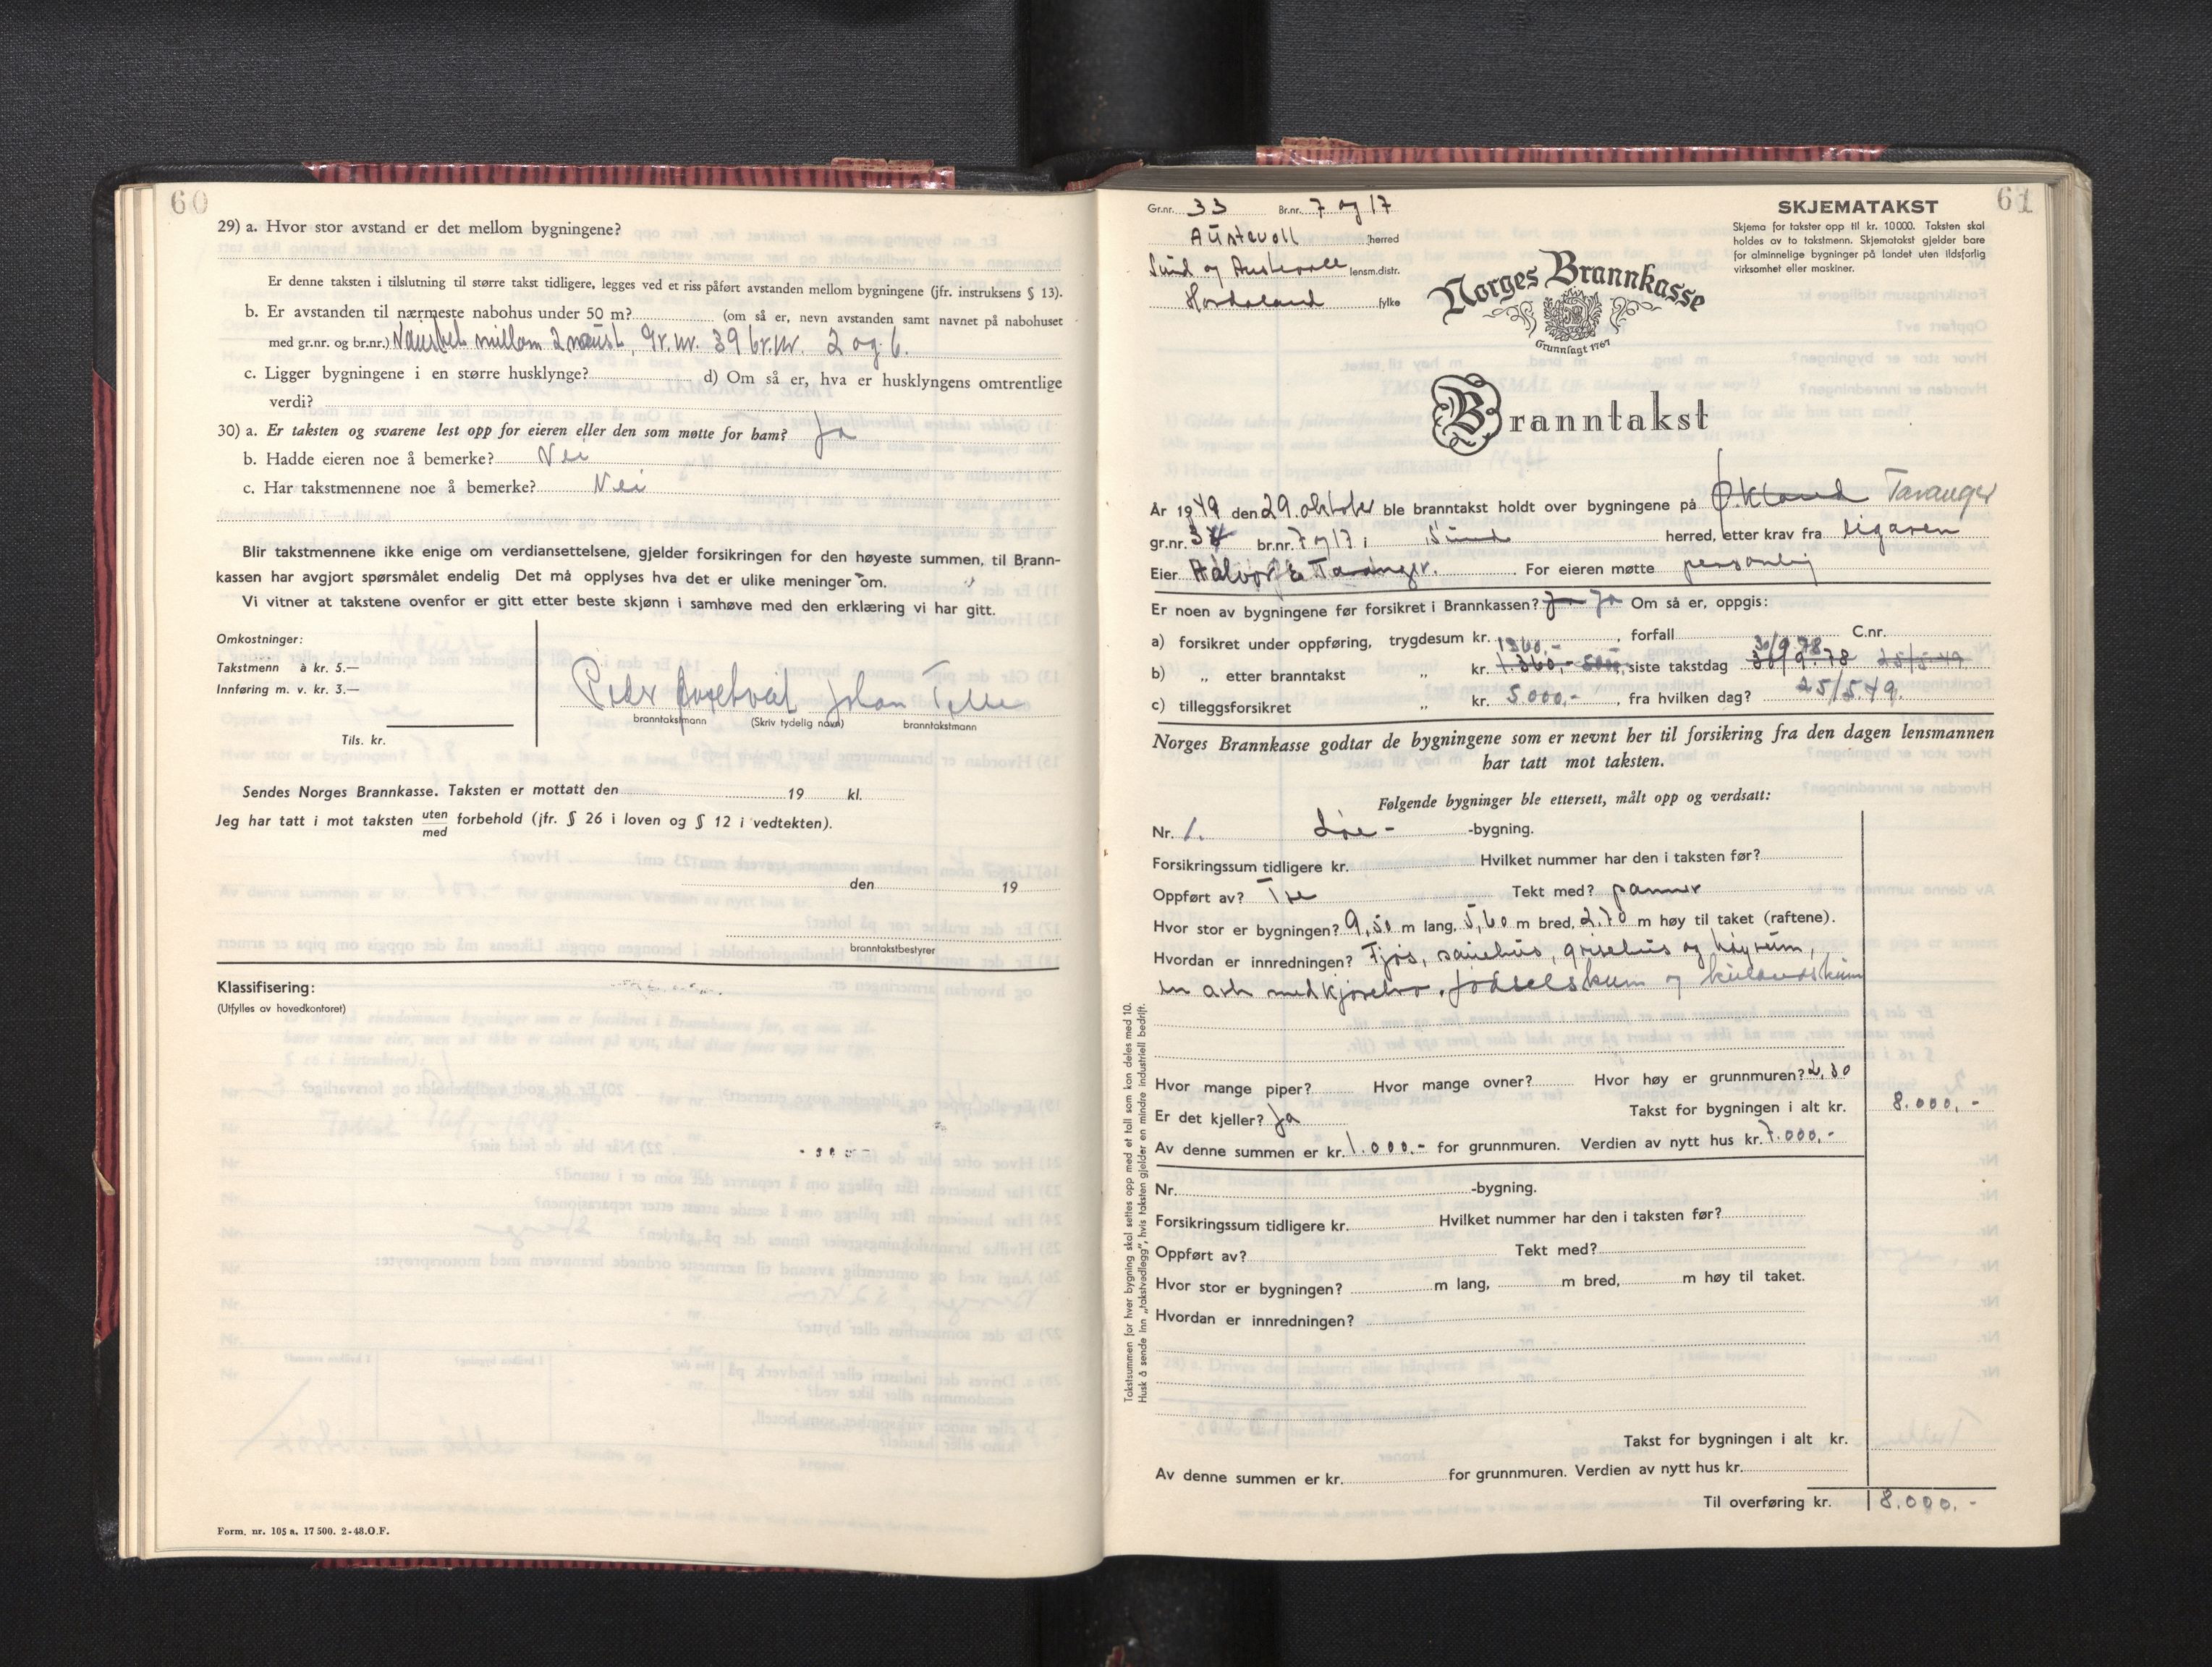 60
29) a. Hvor stor avstand er det mellom bygningene?
Er denne taksten i tilslutning til større takst tidligere, legges ved et riss påført avstanden mellom bygningene (jfr. instruksens § 13).
b. Er avstanden til nærmeste nabohus under 50 m? (om så er, nevn avstanden samt navnet på nabohuset
med gr.nr. og br.nr.) Naustet millom 2 naust, Gr.nr. 39 br.nr. 2 og 6.
c. Ligger bygningene i en større husklynge? d) Om så er, hva er husklyngens omtrentlige
verdi?
30) a. Er taksten og svarene lest opp for eieren eller den som møtte for ham? Ja
b. Hadde eieren noe å bemerke? Nei
c. Har takstmennene noe å bemerke? Nei
Blir takstmennene ikke enige om verdiansettelsene, gjelder forsikringen for den høyeste summen, til Brann-
kassen har avgjort spørsmålet endelig Det må opplyses hva det er ulike meninger om.
Vi vitner at takstene ovenfor er gitt etter beste skjønn i samhøve med den erklæring vi har gitt.
Omkostninger:
Takstmenn à kr. 5.—
Innføring m. v. kr. 3.—
Tils. kr.
Peder Johan Telle
branntakstmann (Skriv tydelig navn) branntakstmann
Sendes Norges Brannkasse. Taksten er mottatt den 19 kl.
Jeg har tatt i mot taksten uten med forbehold (jfr. § 26 i loven og § 12 i vedtekten).
den 19
branntakstbestyrer
Klassifisering:
(Utfylles av hovedkontoret)
Form. nr. 105 a. 17 500. 2-48. O.F.
61
Gr.nr. 33 Br.nr. 7 og 17
Austevoll herred
Sund og Austevoll lensm.distr.
Hordaland fylke
SKJEMATAKST
Skjema for takster opp til kr. 10 000. Taksten skal
holdes av to takstmenn. Skjematakst gjelder bare
for alminnelige bygninger på landet uten ildsfarlig
virksomhet eller maskiner.
Norges Brannkasse
Grunnlagt 1767
Branntakst
År 1949 den 29. oktober ble branntakst holdt over bygningene på Økland Taranger
gr.nr. 3 br.nr. 7 og 17 i Sund herred, etter krav fra eigaren
Eier Halvor Taranger. For eieren møtte personlig
Er noen av bygningene før forsikret i Brannkassen? Ja Ja Om så er, oppgis:
a) forsikret under oppføring, trygdesum kr. , forfall C.nr.
1360,- 30/9.78
b) „ etter branntakst „ kr. 1.360,- 5000, siste takstdag 30/9.78 25/5.49
c) tilleggsforsikret „ kr. 5000,- , fra hvilken dag? 25/5.49.
Norges Brannkasse godtar de bygningene som er nevnt her til forsikring fra den dagen lensmannen
har tatt mot taksten.
Følgende bygninger ble ettersett, målt opp og verdsatt:
Nr. 1. Løe- -bygning.
Forsikringssum tidligere kr. Hvilket nummer har den i taksten før?
Oppført av? Tre Tekt med? panner
Hvor stor er bygningen? 9,50 m lang, 5,60 m bred, 2.70 m høy til taket (raftene).
Hvordan er innredningen? Fjøs, sauehus, grisehus og høyrum,
en ark med kjørebro. fødselskum og
Hvor mange piper? Hvor mange ovner? Hvor høy er grunnmuren? 2,30
Er det kjeller? Ja Takst for bygningen i alt kr. 8.000,-
Av denne summen er kr. 1.000.- for grunnmuren. Verdien av nytt hus kr. 7.000,-
Nr. -bygning.
Forsikringssum tidligere kr. Hvilket nummer har den i taksten før?
Oppført av? Tekt med?
Hvor stor er bygningen? m lang, m bred, m høy til taket.
Hvordan er innredningen?
Takst for bygningen i alt kr.
Av denne summen er kr. for grunnmuren. Verdien av nytt hus kr.
Til overføring kr. 8.000,-
Takstsummen for hver bygning skal settes opp med et tall som kan deles med 10.
Husk å sende inn „takstvedlegg", hvis taksten gjelder en mindre industriell bedrift.